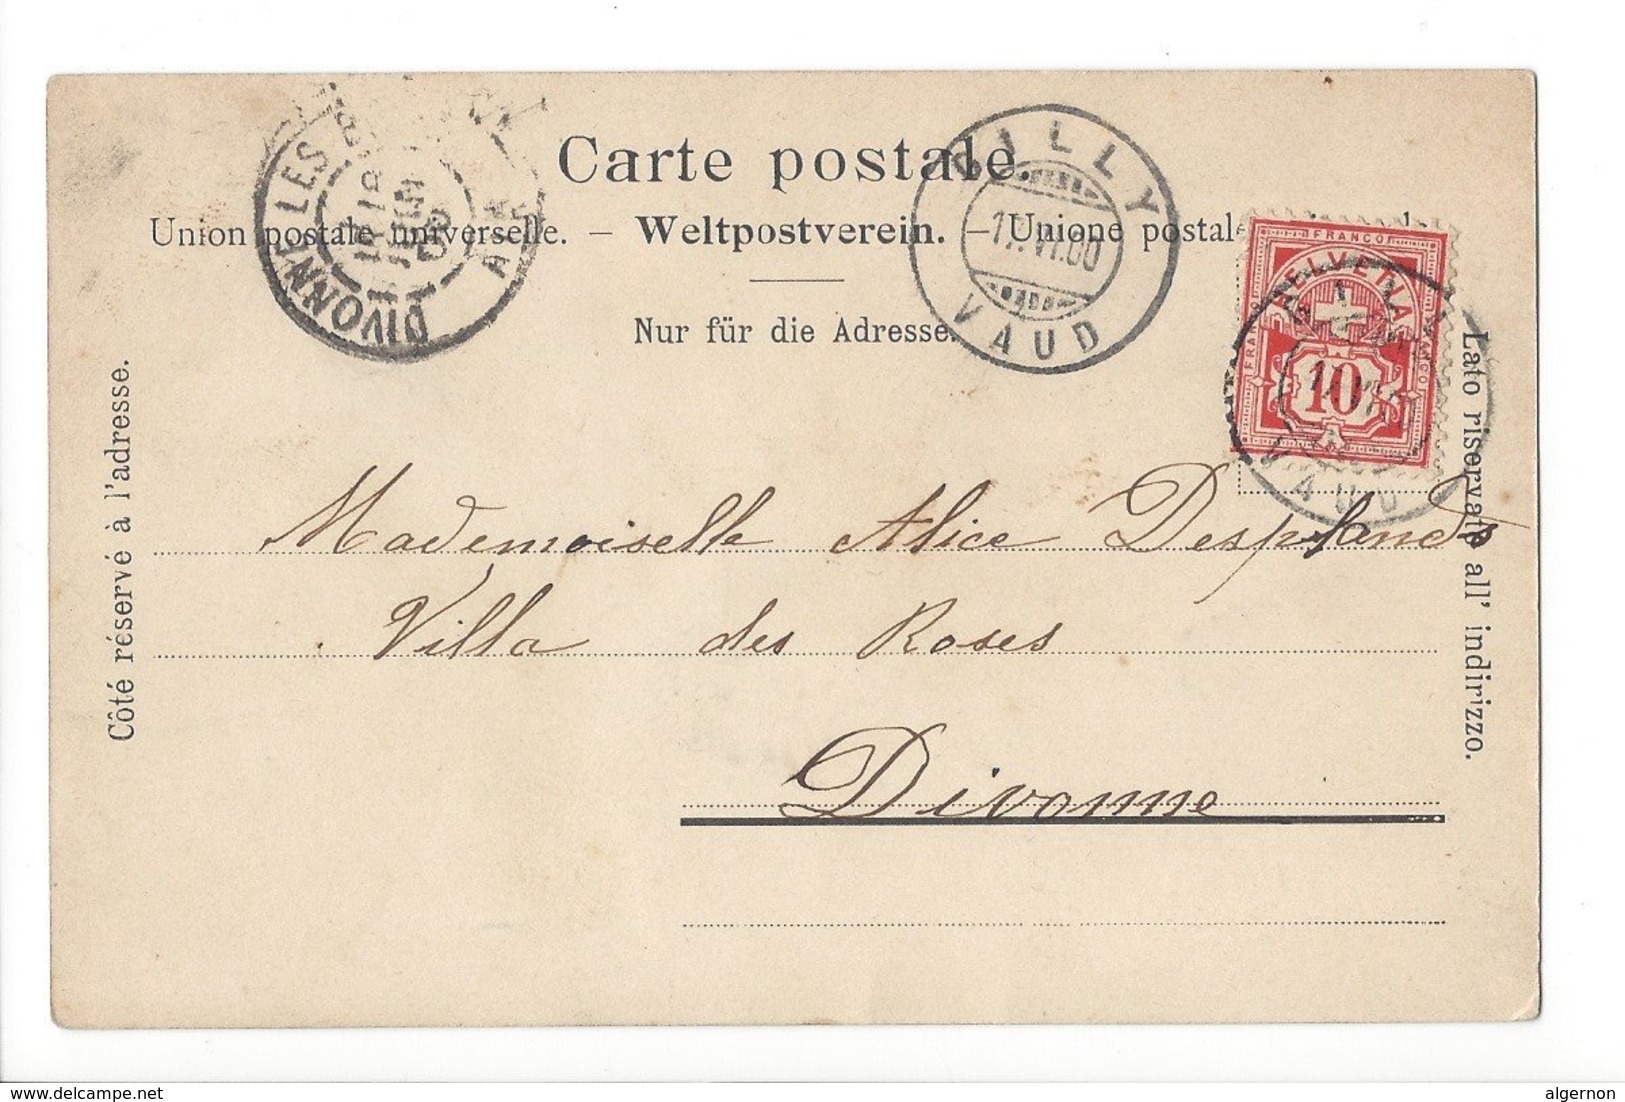 Carte postale
Union postale universelle. — Weltpostverein. — Unione postale
Nur für die Adresse.
Côté réservé à l'adresse.
Lato riservato all' indirizzo.
DIVONNE LES
AIN
GILLY
17.VI.00
VAUD
FRANCO
HELVETIA
FRANCO
10
17.VI
VAUD
Mademoiselle Alice Desplands
Villa des Roses
Divonne
www.delcampe.net
algernon